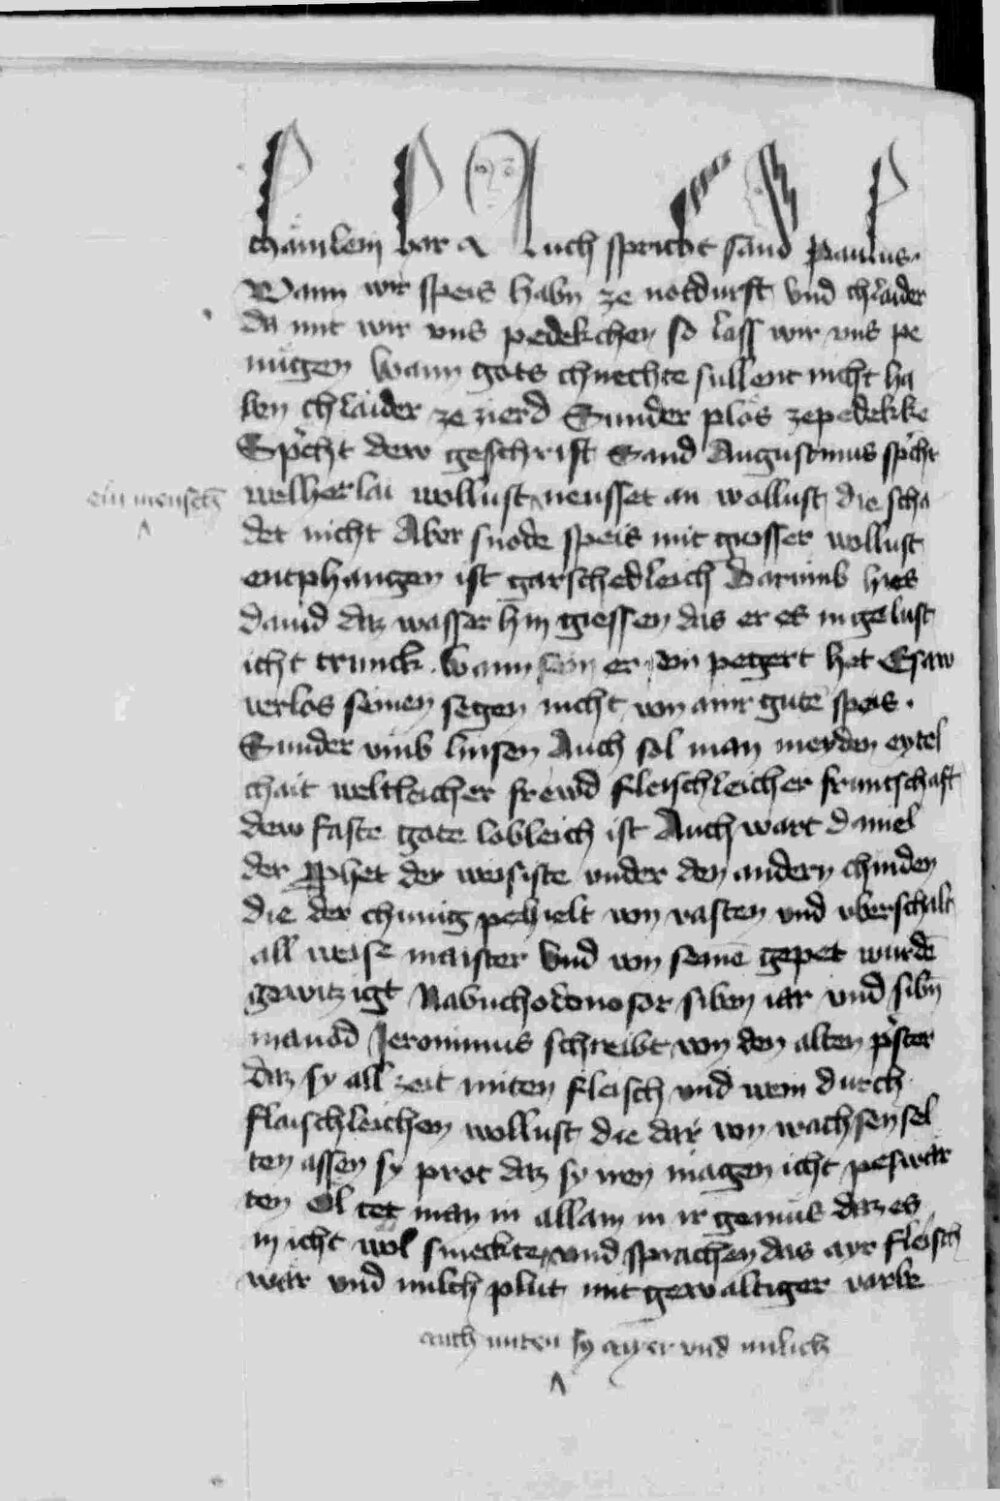 chämlein har Auch spricht sand paulus.
Wann wir speis habn ze notdurft vnd chlaider
da mit wir vns pedekchen so lass wir vns pe
nügen wann gots chnechte sullent nicht ha
ben chlaider ze zierd Sunder plos ze pedekke
Spricht dew geschrift Sand Augustinus spricht
ein mensch
welherlai wollust neusset an wollust die scha
det nicht Aber snode speis mit grosser wollust
enphangen ist gar schedleich Darumb hies
dauid daz wasser hin giessen das er es in gelust
icht trunck. wann er sein pegert het Esaw
verlos seinen segen nicht von ainr gute speis.
Sunder vmb linsen Auch sol man meyden eytel
chait weltleicher frewd fleischleicher fruntschaft
dew faste gote lobleich ist Auch wart daniel
der prophet der weisiste vnder den andern chinden
die der chunig pehielt von vasten vnd vberschalt
all weise maister Vnd von seine gepet wurde
gewitzigt Nabuchodonosor siben iar vnd sibn
manod Jeronimus schreibt von den alten prster
daz sy all zeit miten fleisch vnd wein durch
flaischleichen wollust die dar von wachsen sel
ten assen sy prot daz sy iren magen icht peswär
ten Ol tet man in allain in ir gemüs daz es
in icht wol smeckte vnd sprachen das ayr fleisch
wär vnd milch plut mit gewaltiger varbe
auch miten sy ayer vnd milich